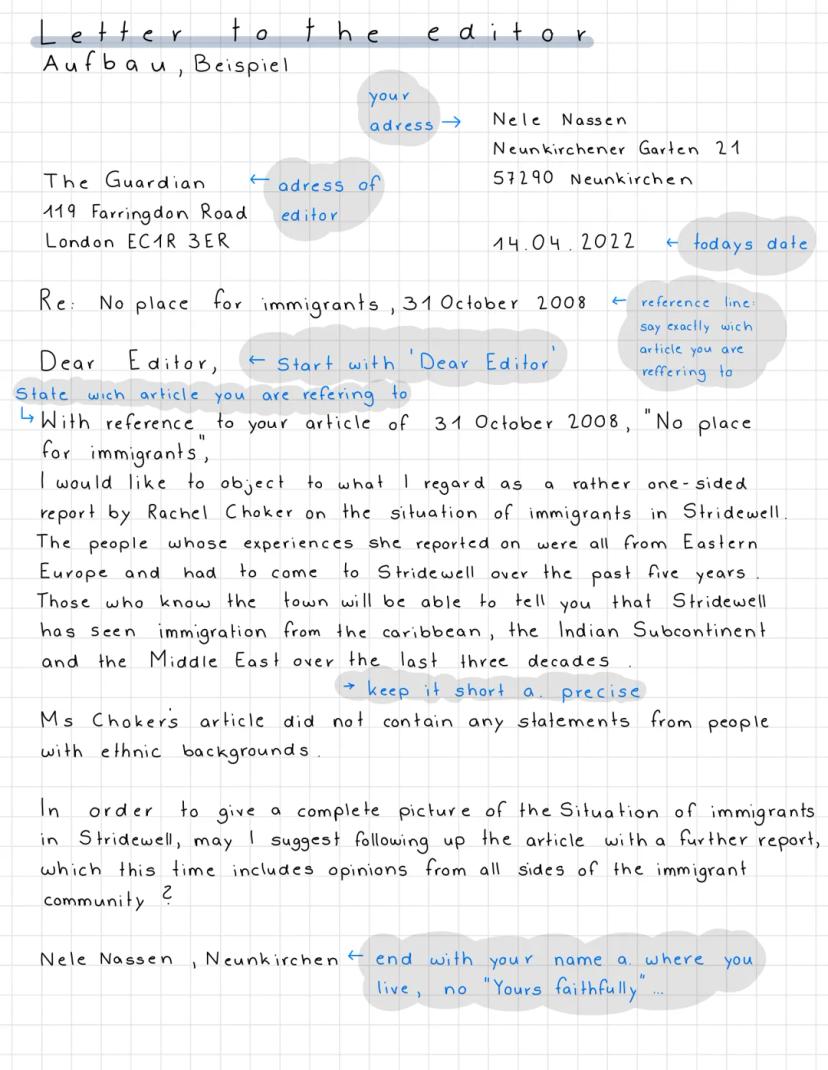 Letter to the editor
Aufbau, Beispiel
your
adress →
Nele Nassen
Neunkirchener Garten 21
57290 Neunkirchen
The Guardian
119 Farringdon Road
London EC1R 3ER
← adress of
editor
14.04.2022 ← todays date
Re: No place for immigrants, 31 October 2008
← reference line:
say exactly wich
article you are
reffering to
Dear Editor, ← Start with 'Dear Editor'
State wich article you are refering to
↳ With reference to your article of 31 October 2008, "No place
for immigrants",
I would like to object to what I regard as a rather one-sided
report by Rachel Choker on the situation of immigrants in Stridewell.
The people whose experiences she reported on were all from Eastern
Europe and had to come to Stridewell over the past five years.
Those who know the town will be able to tell you that Stridewell
has seen immigration from the caribbean, the Indian Subcontinent
and the Middle East over the last three decades.
→ keep it short a. precise
Ms Choker's article did not contain any statements from people
with ethnic backgrounds.
In order to give a complete picture of the Situation of immigrants
in Stridewell, may I suggest following up the article with a further report,
which this time includes opinions from all sides of the immigrant
community?
Nele Nassen, Neunkirchen ← end with your name a. where you
live, no "Yours faithfully"...